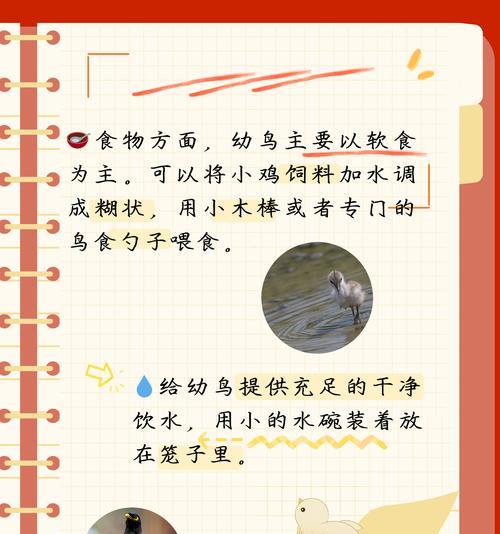 食物方面，幼鸟主要以软食
为主。可以将小鸡饲料加水调
成糊状，用小木棒或者专门的
鸟食勺子喂食。
给幼鸟提供充足的干净
饮水，用小的水碗装着放
在笼子里。